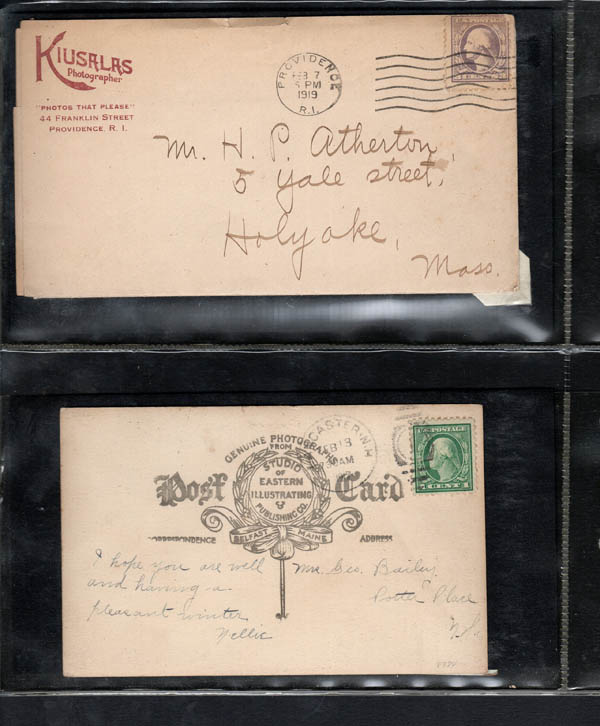 KIUSALAS
Photographer
"PHOTOS THAT PLEASE"
44 FRANKLIN STREET
PROVIDENCE, R. I.
PROVIDENCE
FEB 7
5 PM
1919
R.I.
U.S. POSTAGE
Mr. H. P. Atherton,
5 Yale street,
Holyoke,
Mass.
GENUINE PHOTOGRAPHS
FROM
STUDIO
OF
EASTERN
ILLUSTRATING
&
PUBLISHING CO.
Post Card
BELFAST MAINE
CORRESPONDENCE
ADDRESS
CASTER N.H.
FEB 13
AM
U.S. POSTAGE
1 CENT 1
I hope you are well
and having a
pleasant winter
Nellie
Mrs Geo. Bailey
Potter Place
N.H.